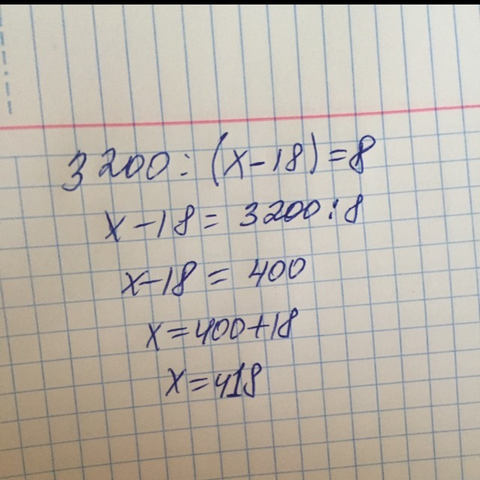 3200 : (x-18)=8
x-18= 3200:8
x-18 = 400
x=400+18
x=418